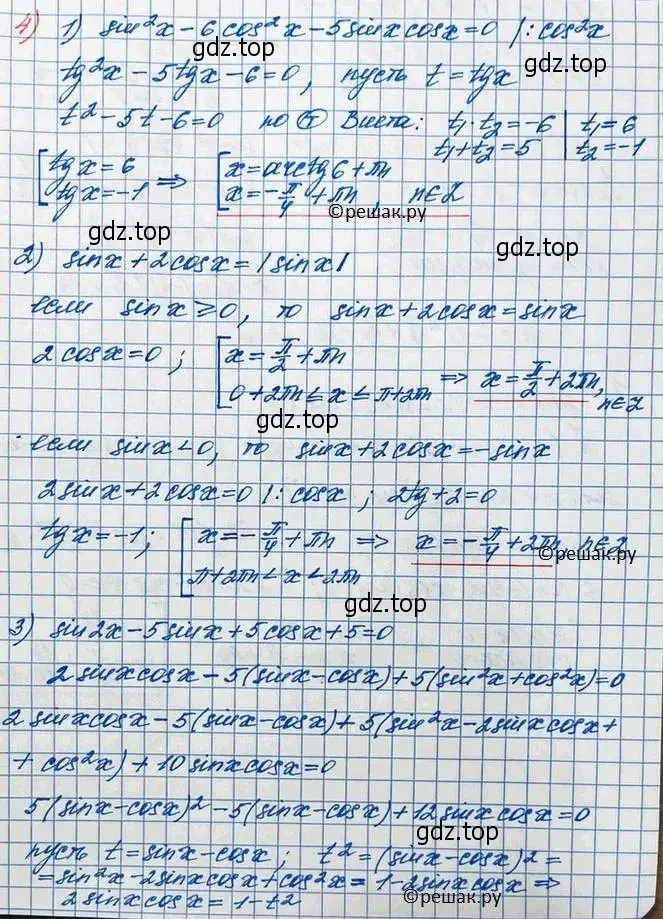 4) 1) sin²x - 6cos²x - 5sinxcosx = 0 |: cos²x
gdz.top
tg²x - 5tgx - 6 = 0, пусть t = tgx
t² - 5t - 6 = 0 по Ⓣ Виета: t₁·t₂ = -6 | t₁ = 6
t₁+t₂ = 5 | t₂ = -1
gdz.top
[tgx = 6 ⇒ [x = arctg6 + πn
[tgx = -1 [x = -π/4 + πn, n∈Z
©решак.ру
gdz.top
2) sinx + 2cosx = |sinx|
если sinx ≥ 0, то sinx + 2cosx = sinx
2cosx = 0; [x = π/2 + πn
gdz.top
[0+2πn ≤ x ≤ π+2πn ⇒ x = π/2 + 2πn, n∈Z
gdz.top
если sinx < 0, то sinx + 2cosx = -sinx
2sinx + 2cosx = 0 |: cosx; 2tg + 2 = 0
gdz.top
tgx = -1; [x = -π/4 + πn ⇒ x = -π/4 + 2πn, n∈Z
©решак.ру
[π+2πn < x < 2πn
gdz.top
3) sin2x - 5sinx + 5cosx + 5 = 0
2sinxcosx - 5(sinx - cosx) + 5(sin²x + cos²x) = 0
gdz.top
2sinxcosx - 5(sinx - cosx) + 5(sin²x - 2sinxcosx +
+ cos²x) + 10sinxcosx = 0
gdz.top
5(sinx - cosx)² - 5(sinx - cosx) + 12sinxcosx = 0
gdz.top
пусть t = sinx - cosx; t² = (sinx - cosx)² =
= sin²x - 2sinxcosx + cos²x = 1 - 2sinxcosx ⇒
2sinxcosx = 1 - t²
gdz.top
©решак.ру